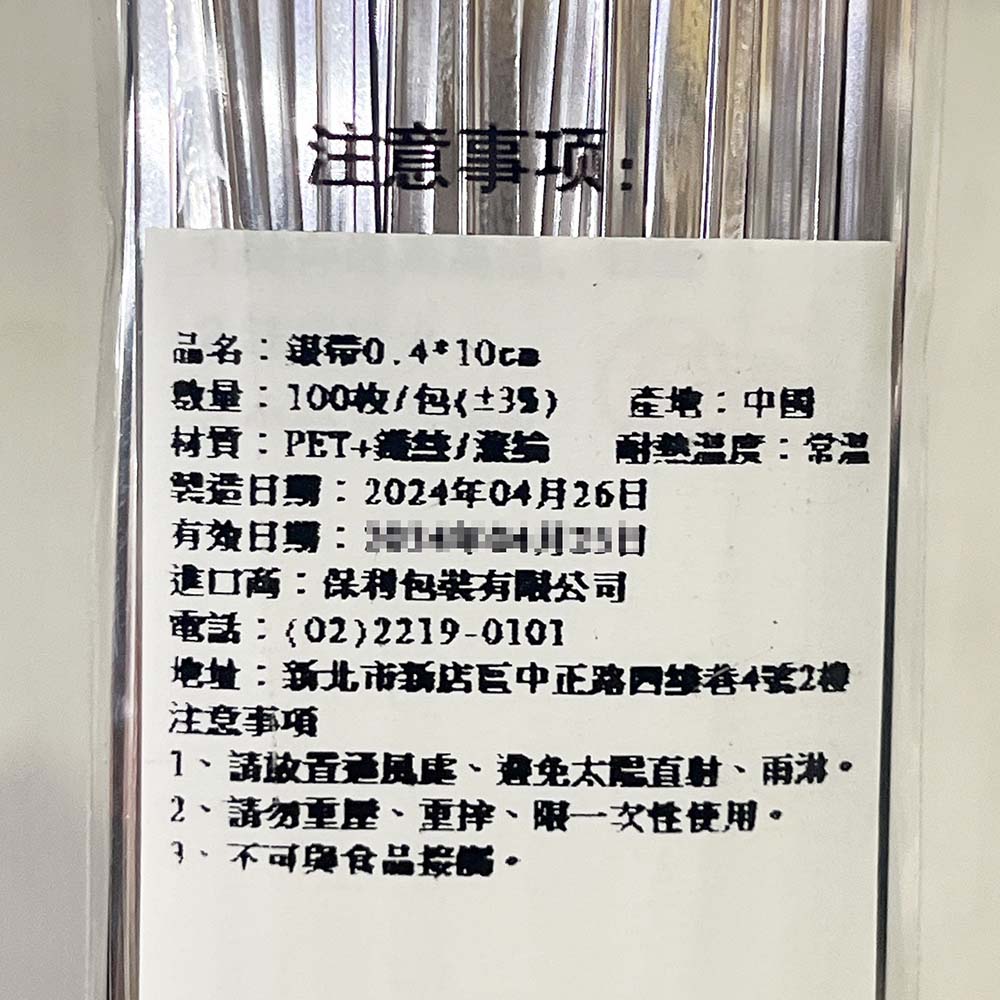 注意事项:
品名：銀帶0.4*10cm
數量：100枚/包(±3%) 產地：中國
材質：PET+鐵絲/滾輪 耐熱溫度：常溫
製造日期：2024年04月26日
有效日期：2034年04月25日
進口商：保利包裝有限公司
電話：(02)2219-0101
地址：新北市新店區中正路四維巷4號2樓
注意事項
1、請放置通風處、避免太陽直射、雨淋。
2、請勿重壓、重摔、限一次性使用。
3、不可與食品接觸。